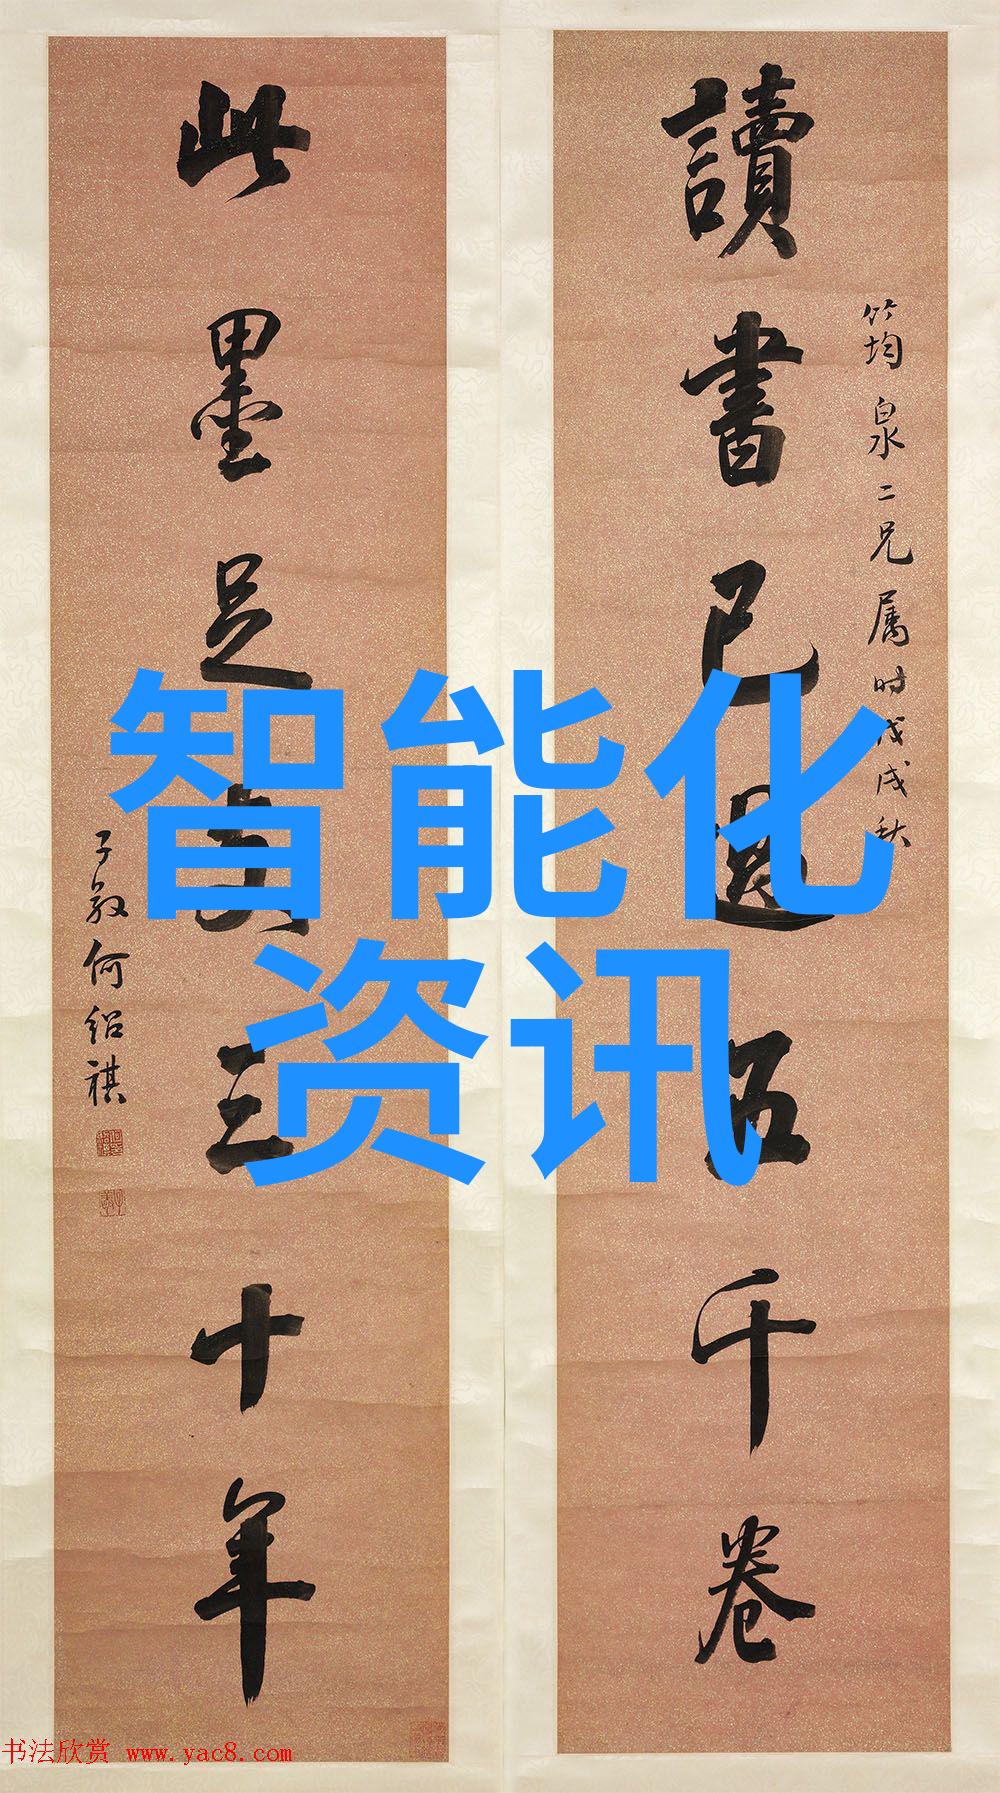 讀書已過五千卷
筠泉二兄属时戊戌秋
此墨足支三十年
子敬何绍祺
智能化
资讯
书法欣赏 www.yac8.com